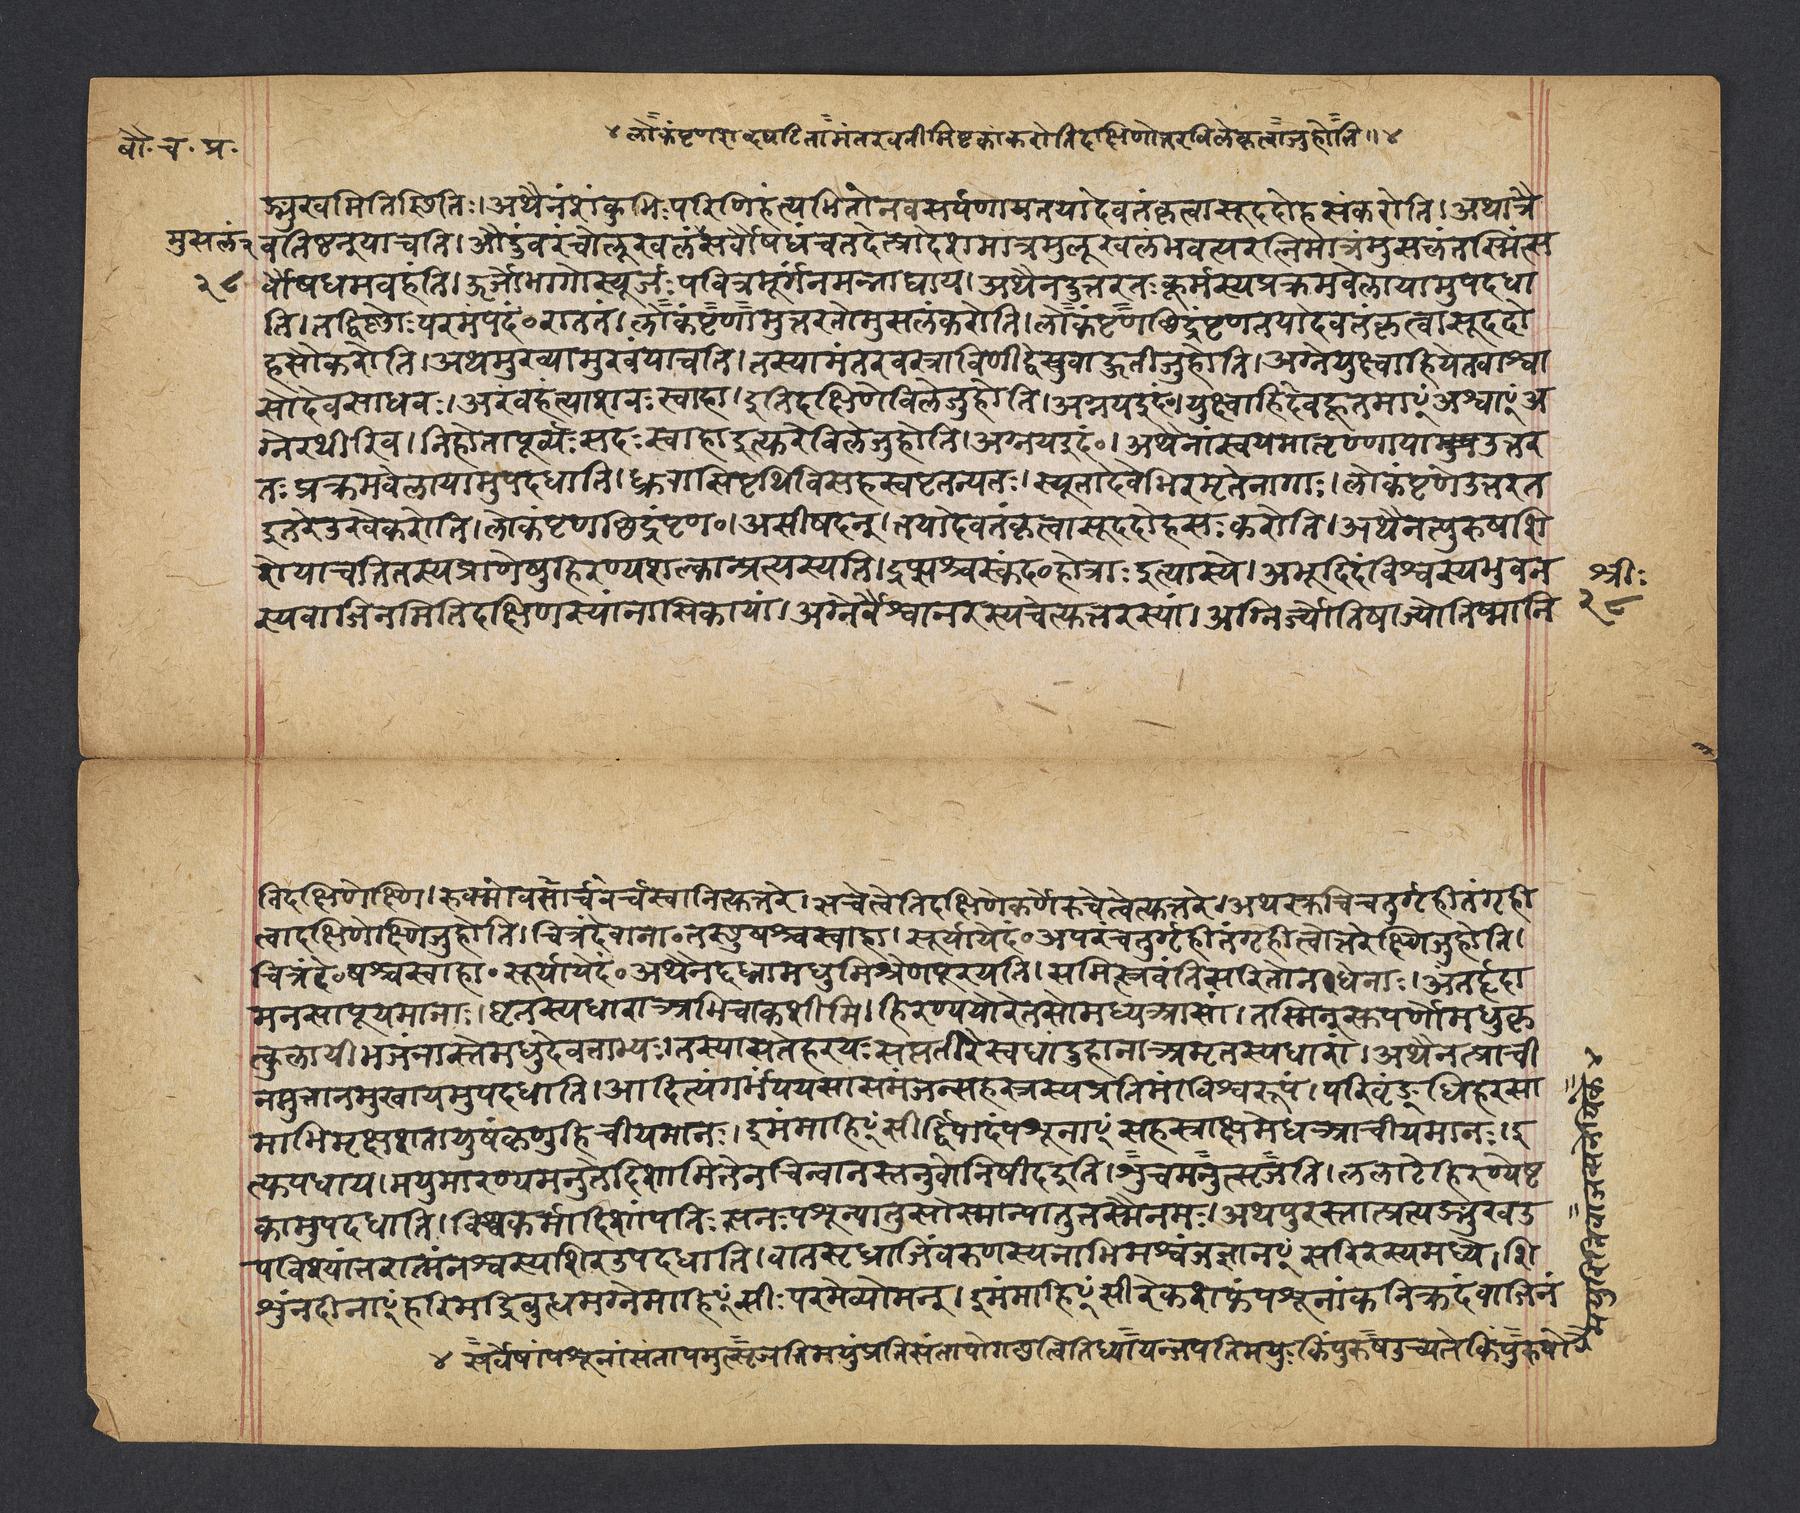 बौ. च. प्र.
४ लोकंपृणशब्दघटितामंतरवतीमिष्टकांकरोतिदक्षिणोत्तरबिलेकृत्वाजुहोति॥४
ङ्मुखमितिस्थितिः।अथैनंशंकुभिःपरिणिहंत्यभितोनवसर्पणायतयादेवतंकृत्वासूददोहसंकरोति।अथात्रै
मुसलं२
वतिष्ठन्नुयाचति।औदुंबरंचोलूखलंसर्वौषधंचतदेत्प्रादेशमात्रमुलूखलंभवत्यरत्निमात्रंमुसलंतस्मिंत्स
२८
र्वौषधमवहंति।ऊर्जोभागोस्यूर्जःपवित्रमूर्गनमन्नाद्याय।अथैनदुत्तरतःकूर्मस्यप्रक्रमवेलायामुपदधा
ति।तद्विष्णोःपरमंपदं॰राततं।लोकंपृणामुत्तरतोमुसलंकरोति।लोकंपृणछिद्रंपृणतयादेवतंकृत्वासूददो
हसंकरोति।अथमुख्यामुखंयाचति।तस्यामंतरवस्त्राविणीद्वेस्रुवाहुतीजुहोति।अग्नेयुक्ष्वाहियेतवाश्वा
सोदेवसाधवः।अरंवहंत्याशवःस्वाहा।इतिदक्षिणेबिलेजुहोति।अग्नयइदं।युक्ष्वाहिदेवहूतमाꣳअश्वाꣳअ
ग्नेरथीरिव।निहोतापूर्व्यःसदःस्वाहाइत्युत्तरेबिलेजुहोति।अग्नयइदं॰।अथैनांस्वयमातृण्णायामुपउत्तर
तःप्रक्रमवेलायामुपदधाति।ध्रुवासिपृथिविसहस्वपृतन्यतः।स्यूतादेवेभिरमृतेनागाः।लोकंपृणेउत्तरत
इतरेउखेकरोति।लोकंपृणछिद्रंपृण॰।असीषदन्।तयादेवतंकृत्वासूददोहसःकरोति।अथैनत्पुरुषशि
रोयाचतितस्यप्राणेषुहिरण्यशल्कान्प्रत्यस्यति।द्रप्सश्चस्कंद॰होत्राःइत्यास्ये।अभूदिदंविश्वस्यभुवन
श्रीः
२८
स्यवाजिनमितिदक्षिणस्यांनासिकायां।अग्नेर्वैश्वानरस्यचेत्युत्तरस्यां।अग्निर्ज्योतिषाज्योतिष्मानि
तिदक्षिणेक्ष्णि।रुक्मोवर्चसावर्चस्वानित्युत्तरे।ऋचेत्वेतिदक्षिणेकर्णेरुचेत्वेत्युत्तरे।अथस्रुचिचतुर्गृहीतंगृही
त्वादक्षिणेक्ष्णिजुहोति।चित्रंदेवाना॰तस्थुषश्चस्वाहा।सूर्यायेदं॰अपरंचतुर्गृहीतंगृहीत्वोत्तरेक्ष्णिजुहोति।
चित्रंदे॰षश्चस्वाहा॰सूर्यायेदं॰अथैनदध्नामधुमिश्रेणपूरयति।समित्स्रवंतिसरितोनधेनाः।अंतर्हृदा
मनसापूयमानाः।घृतस्यधाराअभिचाकशीमि।हिरण्ययोवेतसोमध्यआसां।तस्मिन्सुपर्णोमधुकृ
त्कुलायीभजंनास्तेमधुदेवताभ्यः।तस्यासतेहरयःसप्ततीरेस्वधांदुहानाअमृतस्यधारां।अथैनत्प्राची
नमुत्तानमुखायमुपदधाति।आदित्यंगर्भंपयसासमंजन्सहस्रस्यप्रतिमांविश्वरूपं।परिवृंङ्धिहरसा
माभिमृक्षःशतायुषंकृणुहिचीयमानः।इमंमाहिꣳसीर्द्विपादंपशूनाꣳसहस्राक्षमेधआचीयमानः।इ
त्युपधाय।मयुमारण्यमनुतेदिशामितेनचिन्वानस्तनुवोनिषीदइति।शुचमनुत्सृजति।ललाटेहिरण्येष्ट
कामुपदधाति।विश्वकर्मादिशांपतिःसनःपशून्पातुसोस्मान्पातुतस्मैनमः।अथपुरस्तात्प्रत्यङ्मुखउ
पविश्योत्तरात्मंनश्वस्यशिरउपदधाति।वातस्यध्राजिंवरुणस्यनाभिमश्वंजज्ञानꣳसरिरस्यमध्ये।शि
शुंनदीनाꣳहरिमद्रिबुद्धमग्नेमाहिꣳसीःपरमेव्योमन्।इमंमाहिꣳसीरेकशफंपशूनांकनिक्रदंवाजिनं
४ सर्वेषांपशूनांसंतापमुत्सृजतिमयुंप्रतिसंतापोगच्छत्वितिध्यायन्जपतिमयुःकिंपुरुषउच्यतेकिंपुरुषो